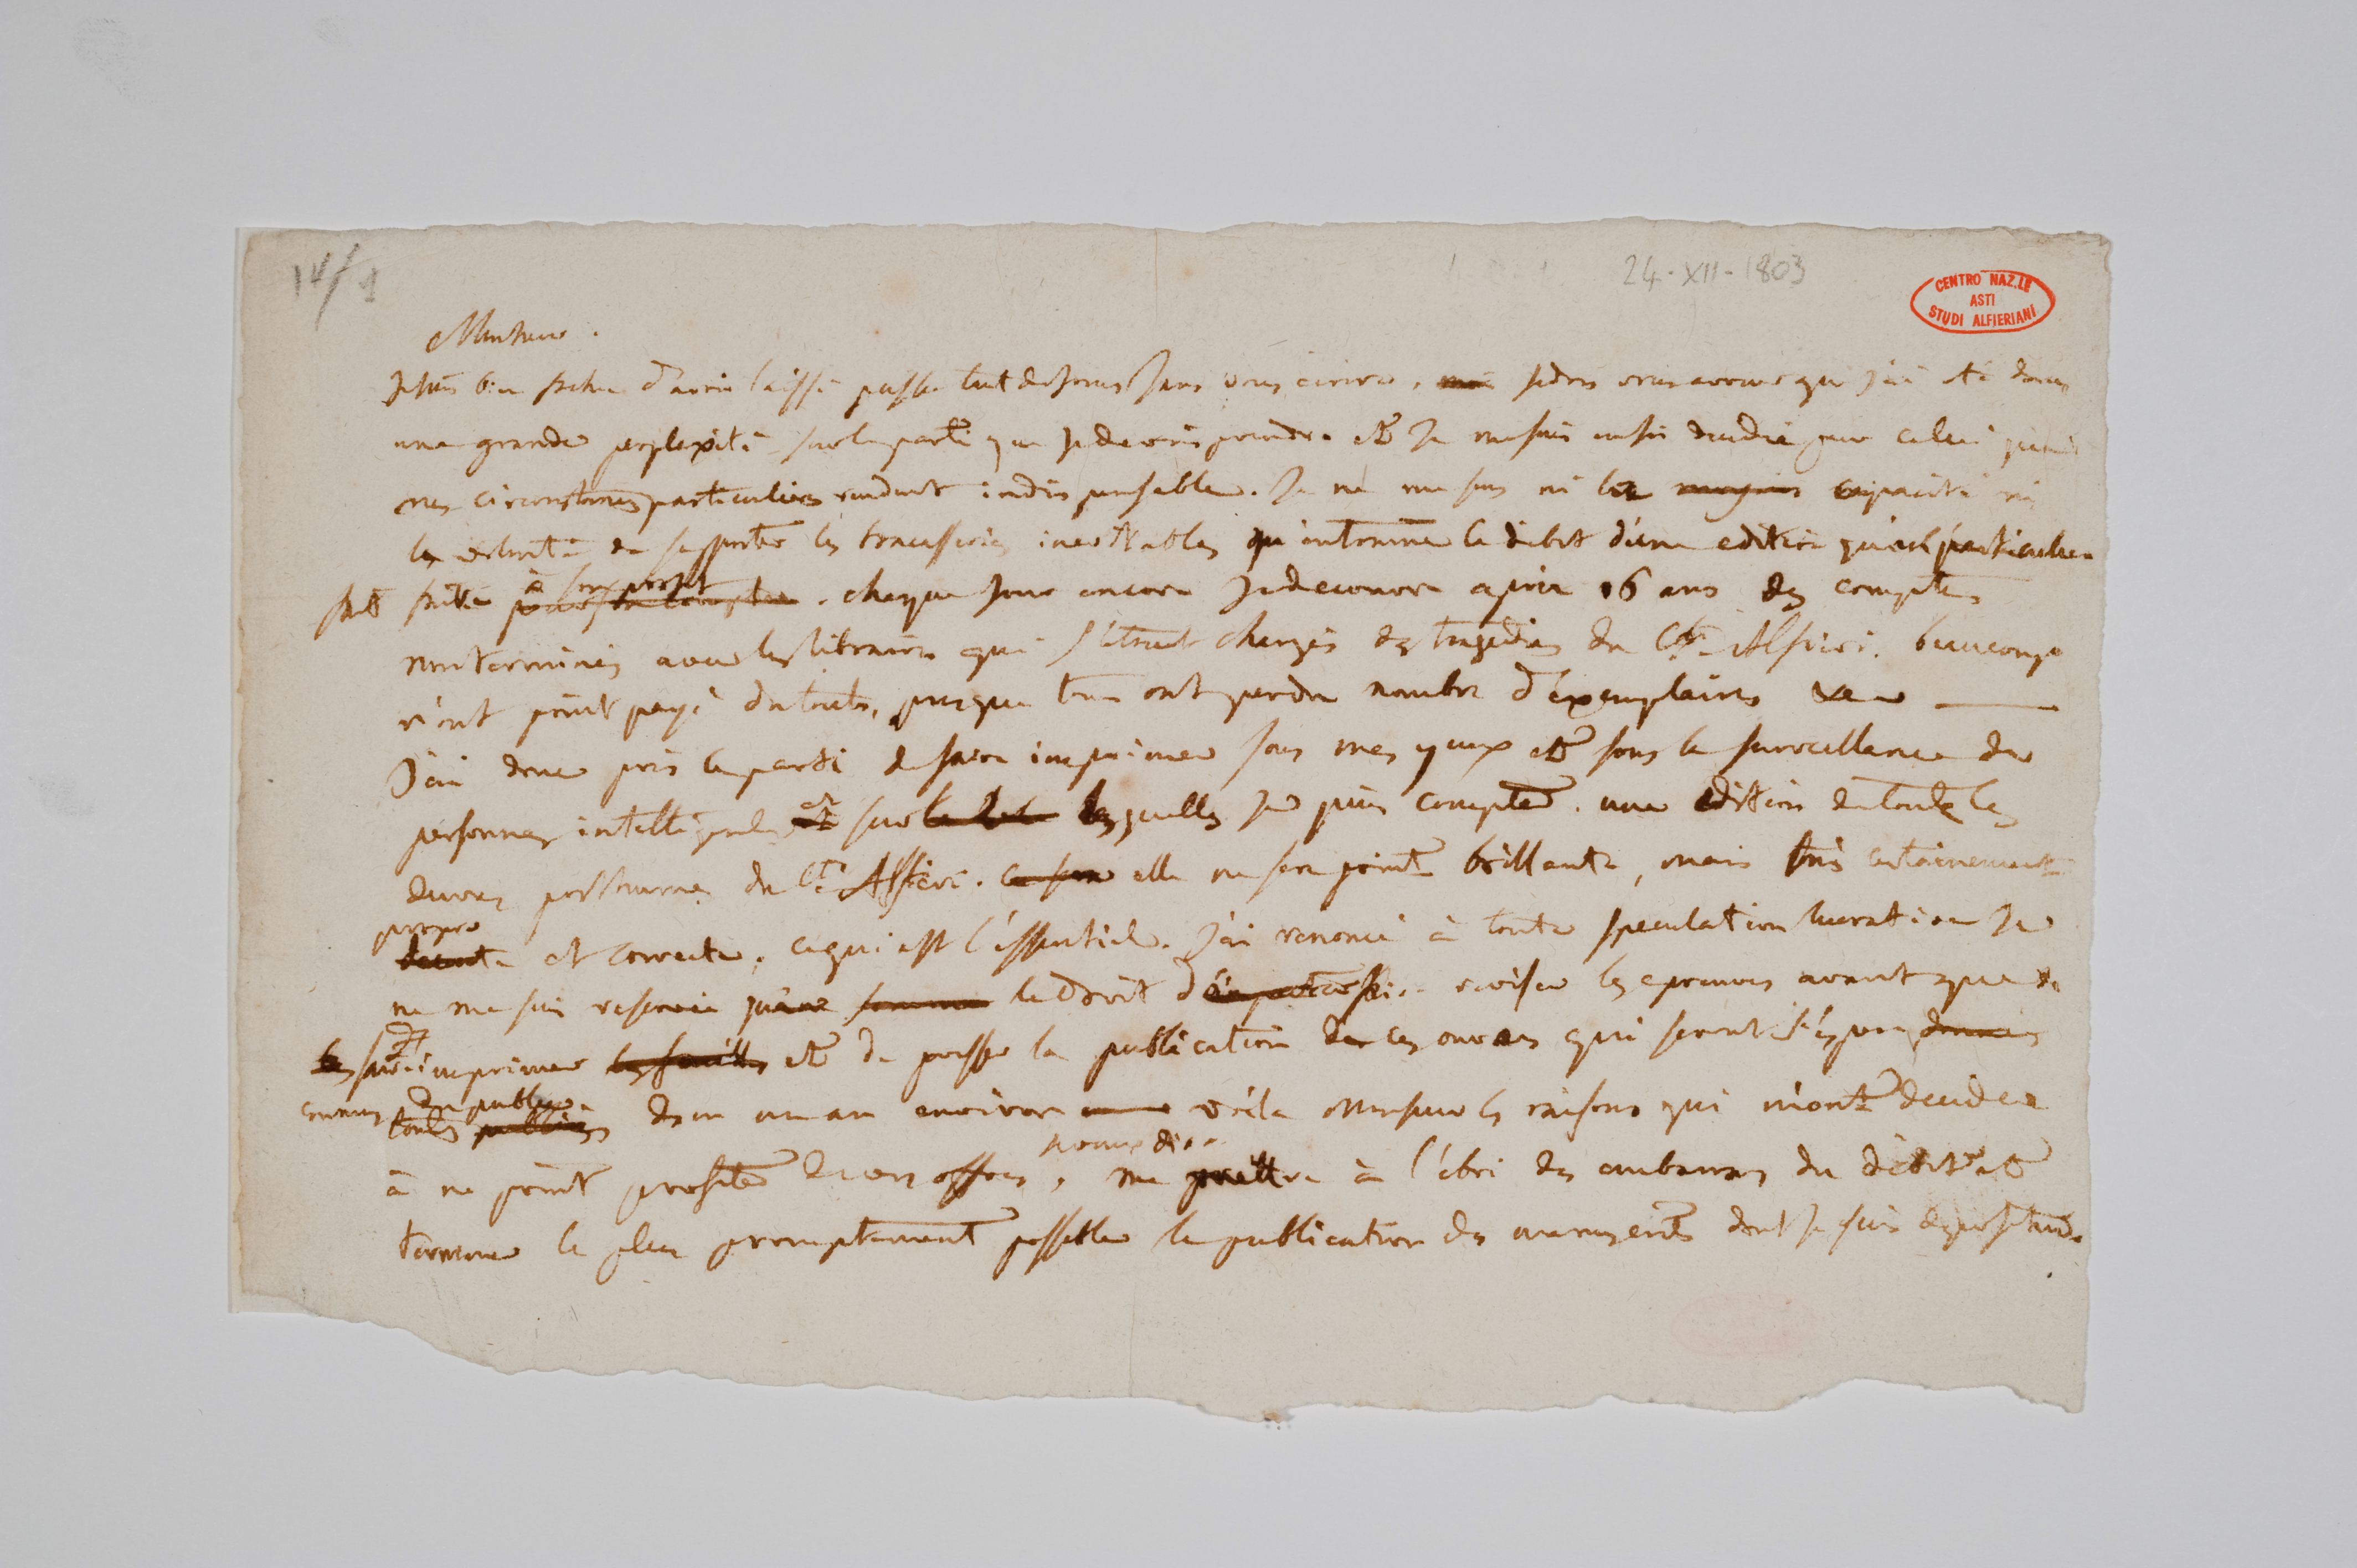 14/1
24-XII-1803
CENTRO NAZ.LE
ASTI
STUDI ALFIERIANI
Monsieur.
Je suis bien fachee d'avoir laissé passer tant de jours sans vous ecrire, mais je dois vous avouer que j'ai été dans
une grande perplexité sur le parti que je devois prendre et je me suis enfin decidée pour celui que
mes circonstances particulieres rendent indispensable. Je ne me sens ni la capacité ni
la volonté de supporter les tracasseries inevitables qu'entraine le debit d'une edition qu'un particulier
fait faire à son profit. chaque jour encore je decouvre après 16 ans des comptes
non terminés avec les libraires qui s'etoient chargés des tragedies du Cte Alfieri. beaucoup
n'ont point payé du tout, presque tous ont perdu nombre d'exemplaires
J'ai donc pris le parti de faire imprimer sous mes yeux et sous la surveillance de
personnes intelligentes et sur lesquelles je puis compter. une edition de toutes les
œuvres posthumes du Cte Alfieri. elle ne sera point brillante, mais très certainement
propre
et correcte, ce qui est l'essentiel. J'ai renoncé à toute speculation lucrative je
ne me suis reservé que le droit de reviser les epreuves avant que de
les faire imprimer les feuilles et de presser la publication de ces ouvrages qui seront j'espere
connus du public
toutes publiées dans un an environ voila Monsieur les raisons qui m'ont decidée
je veux dire
à ne point profiter de vos offres, me mettre à l'abri des embarras du debit et
terminer le plus promptement possible la publication des manuscrits dont je suis depositaire.